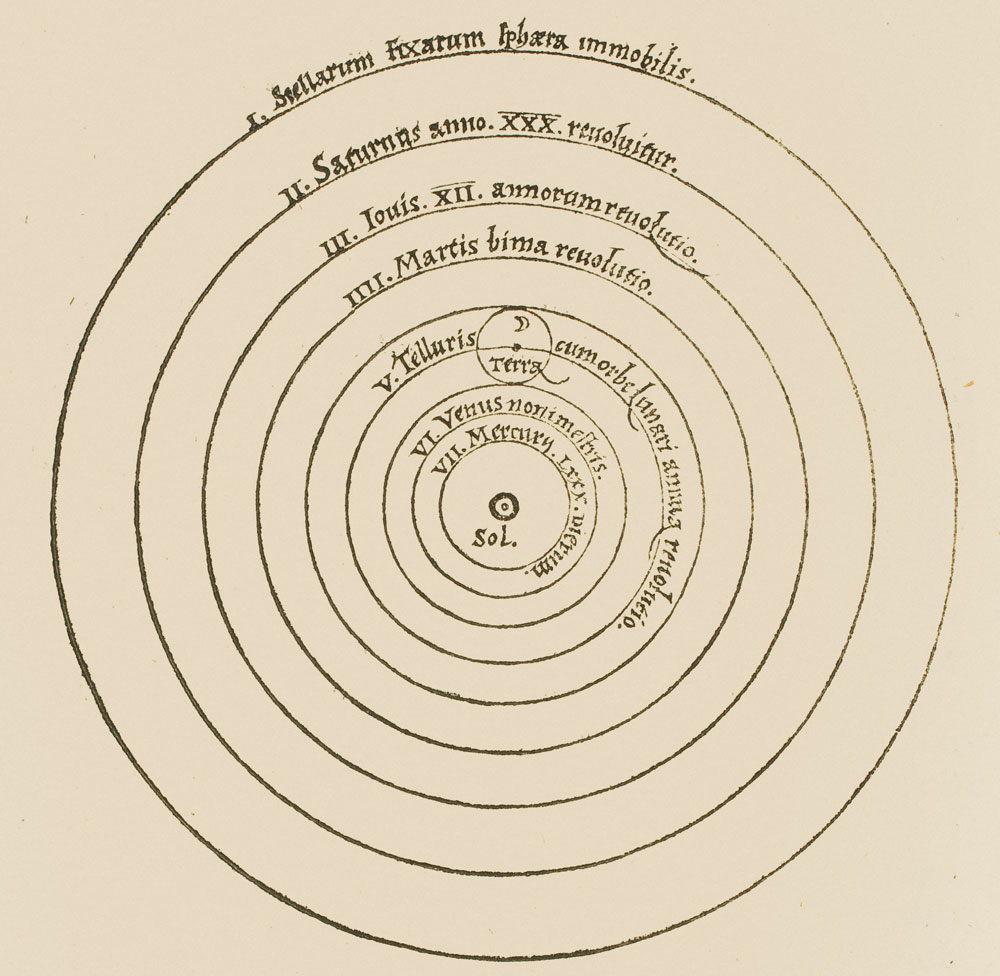 I. Stellarum Fixarum Sphæra immobilis.
II. Saturnus anno. XXX. reuoluitur.
III. Iouis. XII. annorum reuolutio.
IIII. Martis bima reuolutio.
V. Telluris cum orbe lunari annua reuolutio.
Terra
VI. Venus nonimestris.
VII. Mercurij. LXXX. dierum.
Sol.